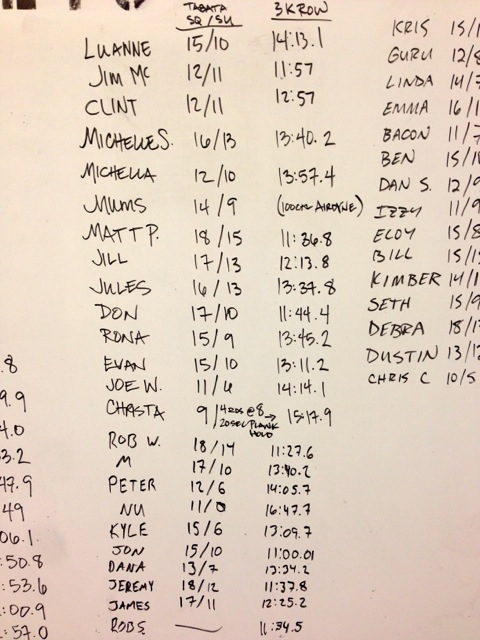 TABATA SQ/SU 3K ROW
LUANNE 15/10 14:13.1
JIM MC 12/11 11:57
CLINT 12/11 12:57
MICHELLE S. 16/13 13:40.2
MICHELLA 12/10 13:57.4
MUMS 14/9 (100CAL AIRDYNE)
MATT P. 18/15 11:36.8
JILL 17/13 12:13.8
JULES 16/13 13:37.8
DON 17/10 11:44.4
RONA 15/9 13:45.2
EVAN 15/10 13:11.2
JOE W. 11/6 14:14.1
CHRSTA 9/4RDS@8 → 15:17.9
20SEC PLANK
HOLD
ROB W. 18/14 11:27.6
M 17/10 13:40.2
PETER 12/6 14:05.7
NU 11/0 16:47.7
KYLE 15/6 13:09.7
JON 15/10 11:00.01
DANA 13/7 13:34.2
JEREMY 18/12 11:37.8
JAMES 17/11 12:25.2
ROBS — 11:34.5
KRIS 15/1
GURU 12/8
LINDA 14/7
EMMA 16/1
BACON 11/7
BEN 15/1
DAN S. 12/9
IZZY 11/9
ELOY 15/8
BILL 15/1
KIMBER 14/1
SETH 15/9
DEBRA 18/1
DUSTIN 13/12
CHRIS C 10/5
.8
9.9
4.0
3.2
47.9
49
06.1
:50.8
:53.6
:00.9
:57.0